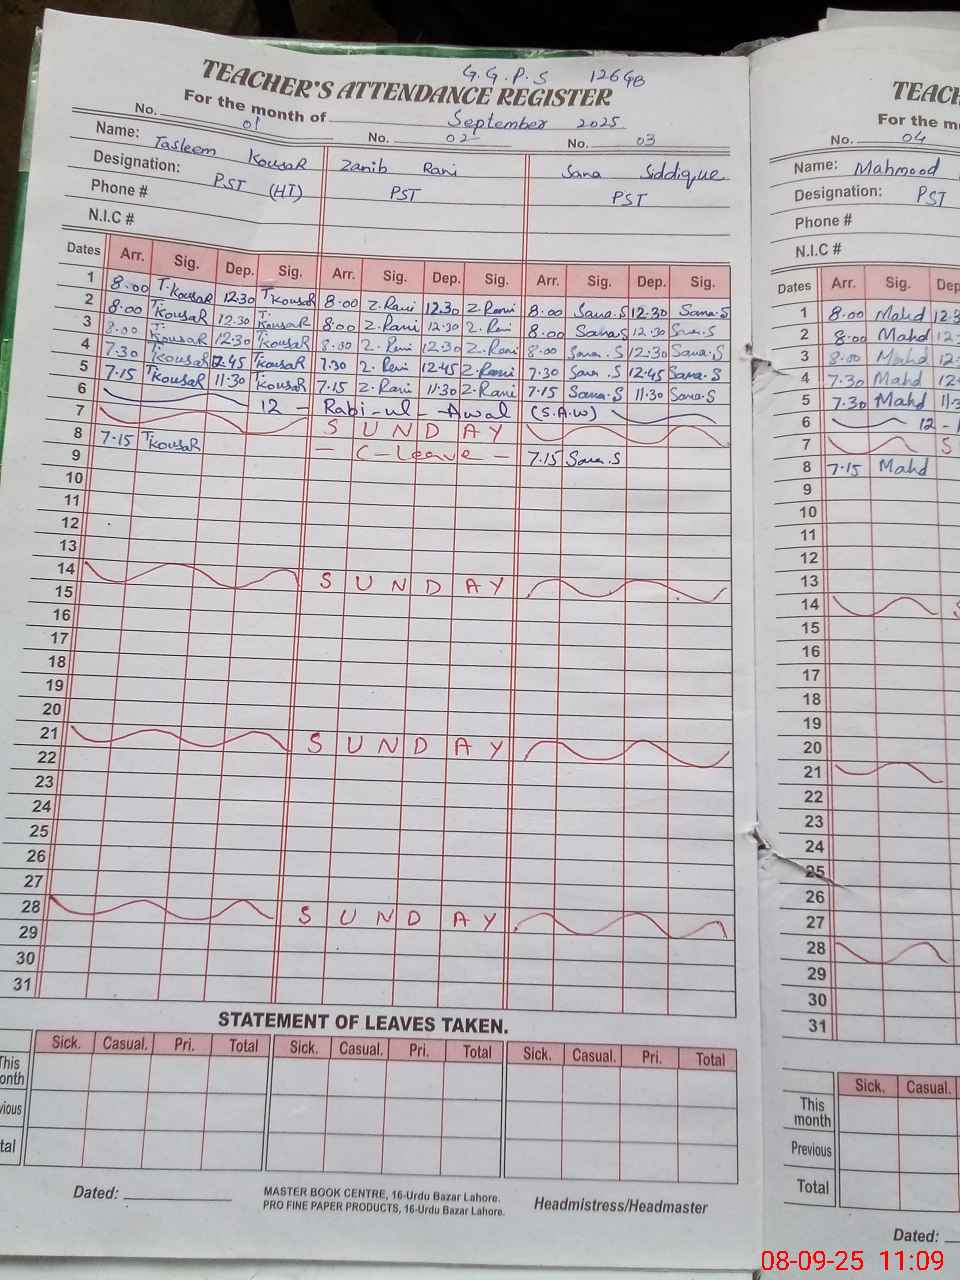 G.G.P.S 126GB
TEACHER'S ATTENDANCE REGISTER
For the month of September 2025
No. 01 No. 02 No. 03
Name: Tasleem KousaR Zanib Rani Sana Siddique
Designation: PST (HT) PST PST
Phone #
N.I.C #
Dates Arr. Sig. Dep. Sig. Arr. Sig. Dep. Sig. Arr. Sig. Dep. Sig.
1 8.00 T.KousaR 12.30 T.KousaR 8.00 Z.Rani 12.30 Z.Rani 8.00 Sana.S 12.30 Sana.S
2 8.00 T.KousaR 12.30 T.KousaR 8.00 Z.Rani 12.30 Z.Rani 8.00 Sana.S 12.30 Sana.S
3 8.00 T.KousaR 12.30 T.KousaR 8.00 Z.Rani 12.30 Z.Rani 8.00 Sana.S 12.30 Sana.S
4 7.30 T.KousaR 12.45 T.KousaR 7.30 Z.Rani 12.45 Z.Rani 7.30 Sana.S 12.45 Sana.S
5 7.15 T.KousaR 11.30 T.KousaR 7.15 Z.Rani 11.30 Z.Rani 7.15 Sana.S 11.30 Sana.S
6 12 - Rabi-ul-Awal (S.A.W)
7 SUNDAY
8 7.15 T.KousaR - C-Leave - 7.15 Sana.S
9
10
11
12
13
14 SUNDAY
15
16
17
18
19
20
21 SUNDAY
22
23
24
25
26
27
28 SUNDAY
29
30
31
STATEMENT OF LEAVES TAKEN.
Sick. Casual. Pri. Total Sick. Casual. Pri. Total Sick. Casual. Pri. Total
This
onth
vious
tal
Dated:
MASTER BOOK CENTRE, 16-Urdu Bazar Lahore.
PRO FINE PAPER PRODUCTS, 16-Urdu Bazar Lahore.
Headmistress/Headmaster
TEACH
For the m
No. 04
Name: Mahmood
Designation: PST
Phone #
N.I.C #
Dates Arr. Sig. Dep
1 8.00 Mahd 12.3
2 8.00 Mahd 12
3 8.00 Mahd 12
4 7.30 Mahd 12
5 7.30 Mahd 11.3
6 12 -
7 S
8 7.15 Mahd
9
10
11
12
13
14 S
15
16
17
18
19
20
21
22
23
24
25
26
27
28
29
30
31
Sick. Casual.
This
month
Previous
Total
Dated:
08-09-25 11:09